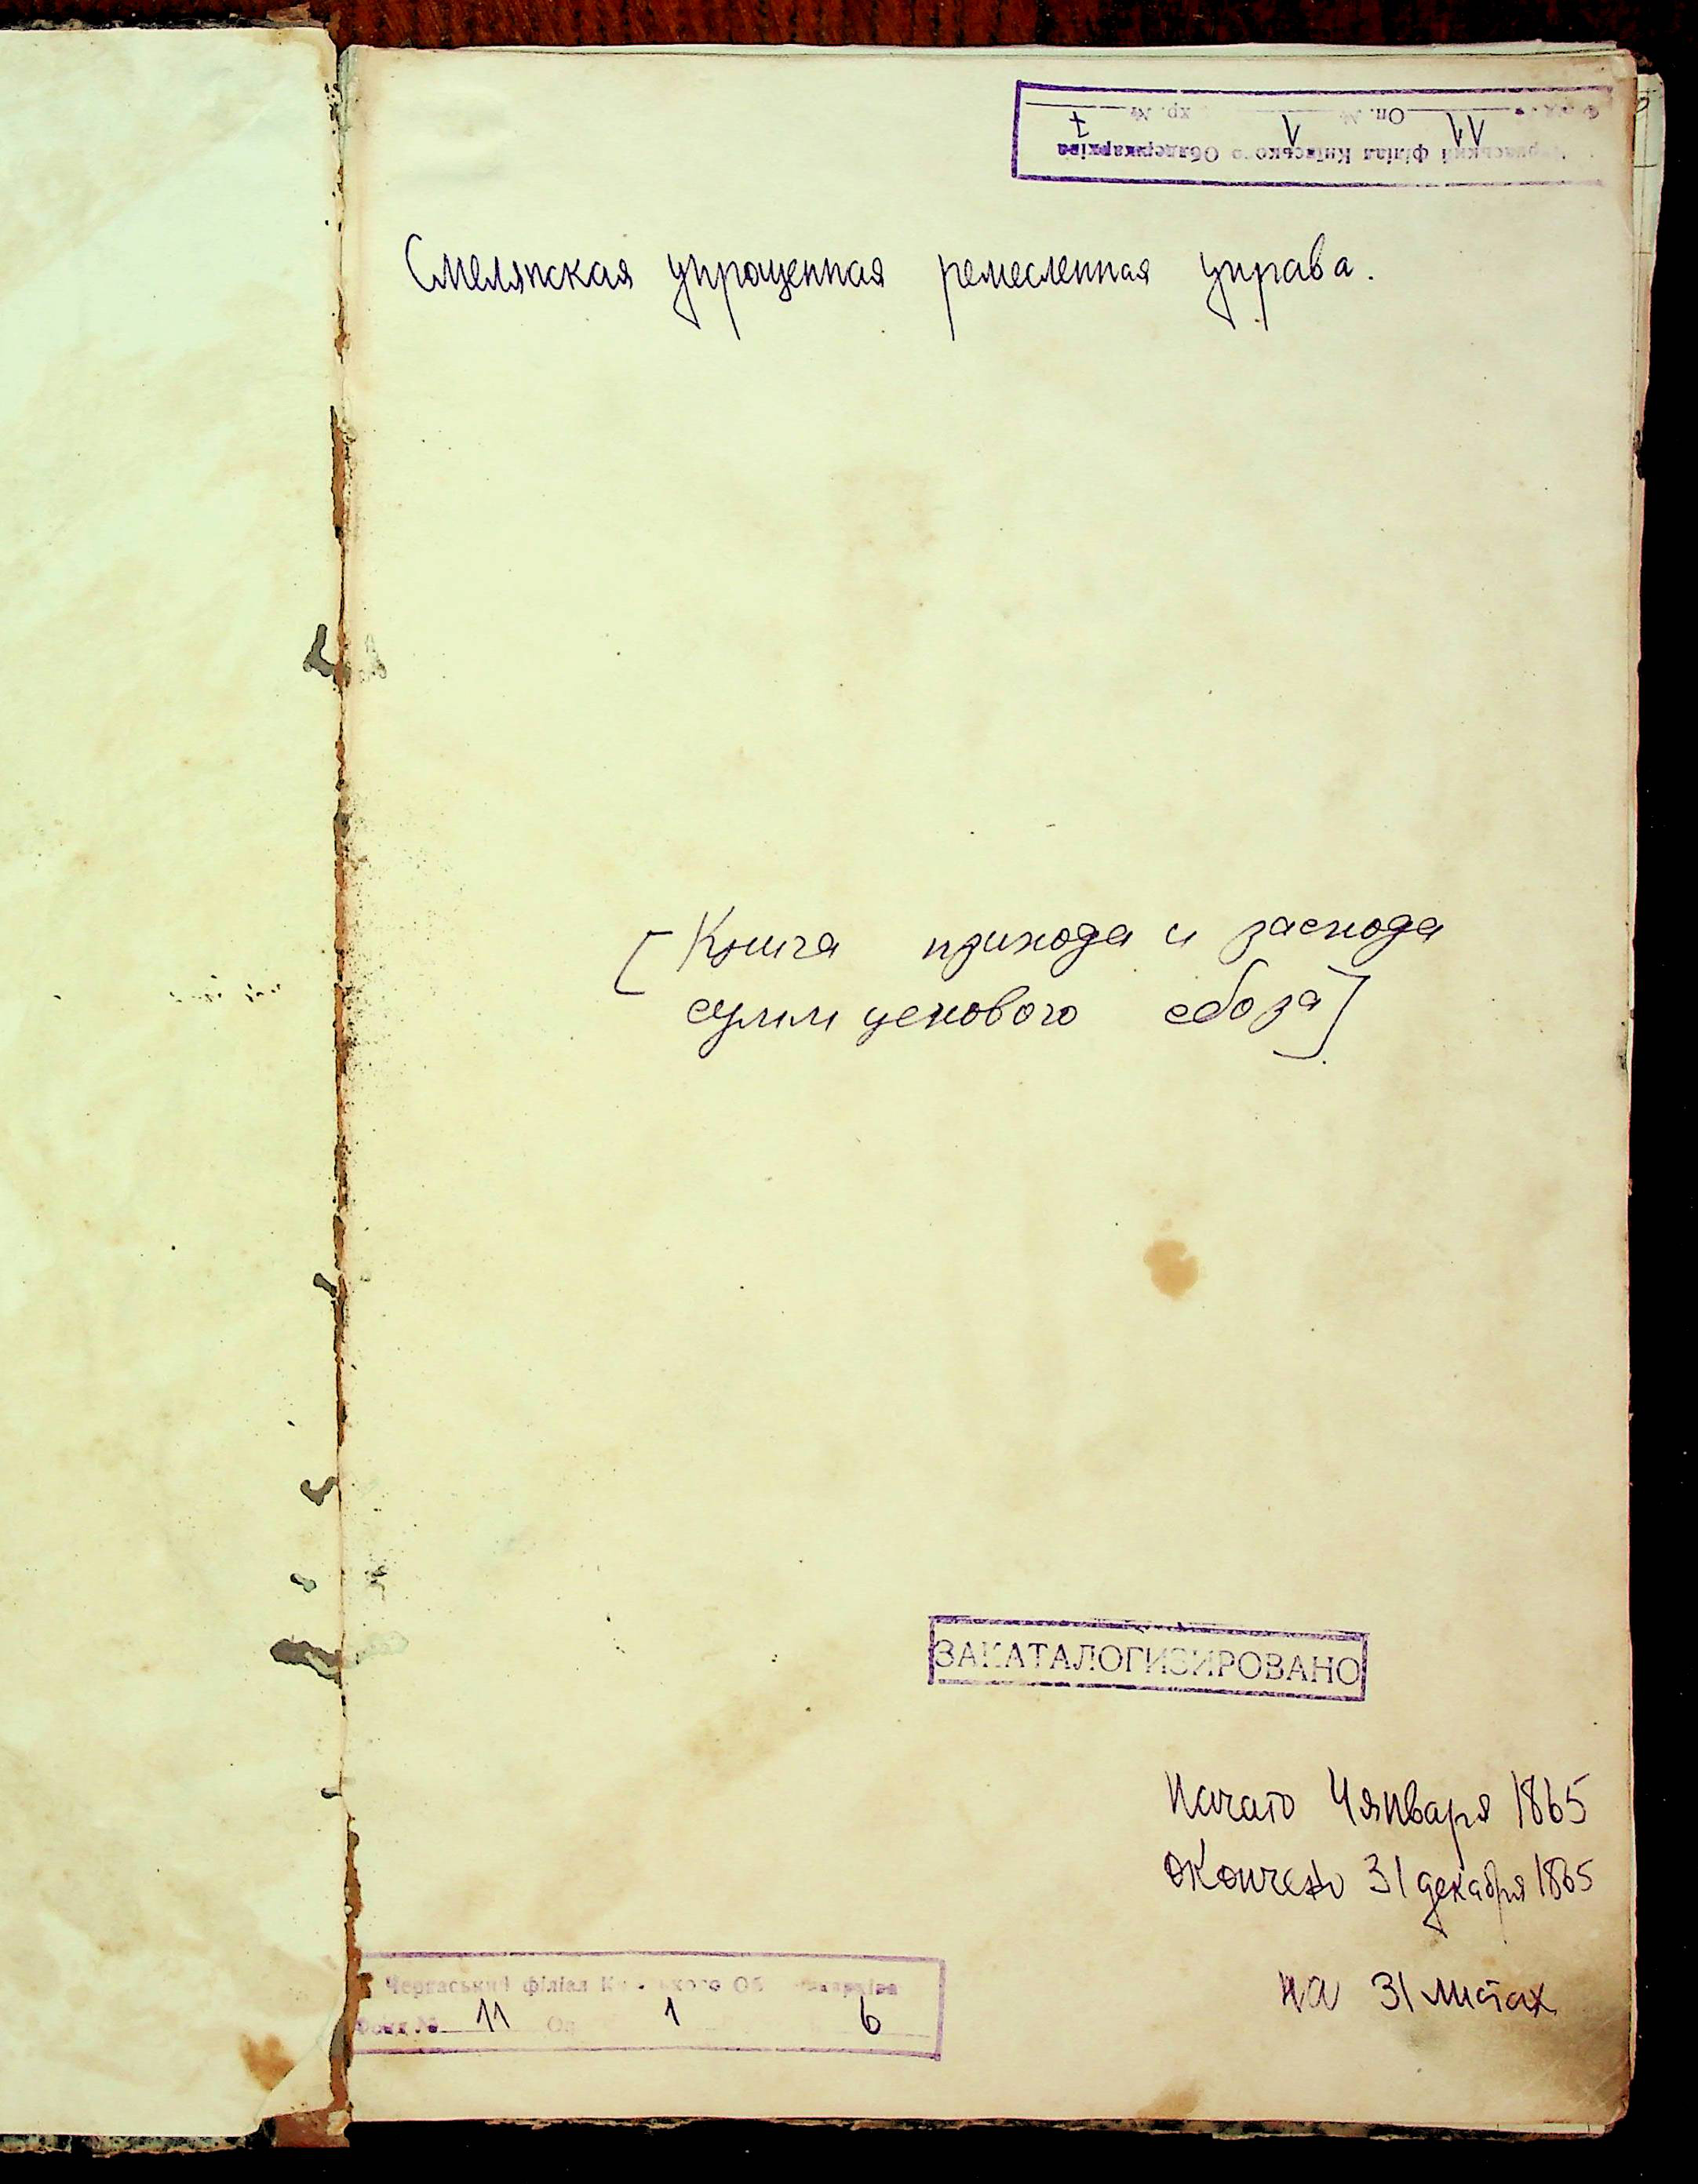 Оп. № хр. №
11 1 7
філіал Київського Облдержархіва
Смелянская упрощенная ремесленная управа.
[Книга прихода и расхода
сумм цехового сбора]
ЗАКАТАЛОГИЗИРОВАНО
Начато 4 января 1865
Окончено 31 декабря 1865
на 31 листах
Черкаський філіал
Фонд № 11 Оп 1 6